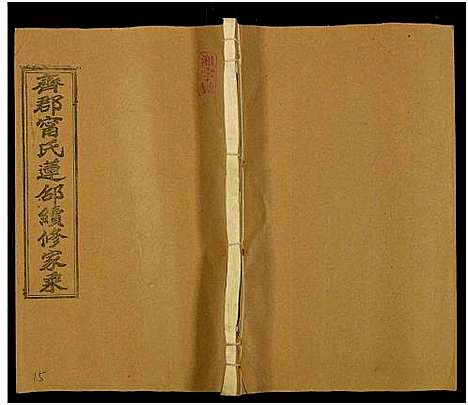 齊郡甯氏蓮邵續修家乘
15